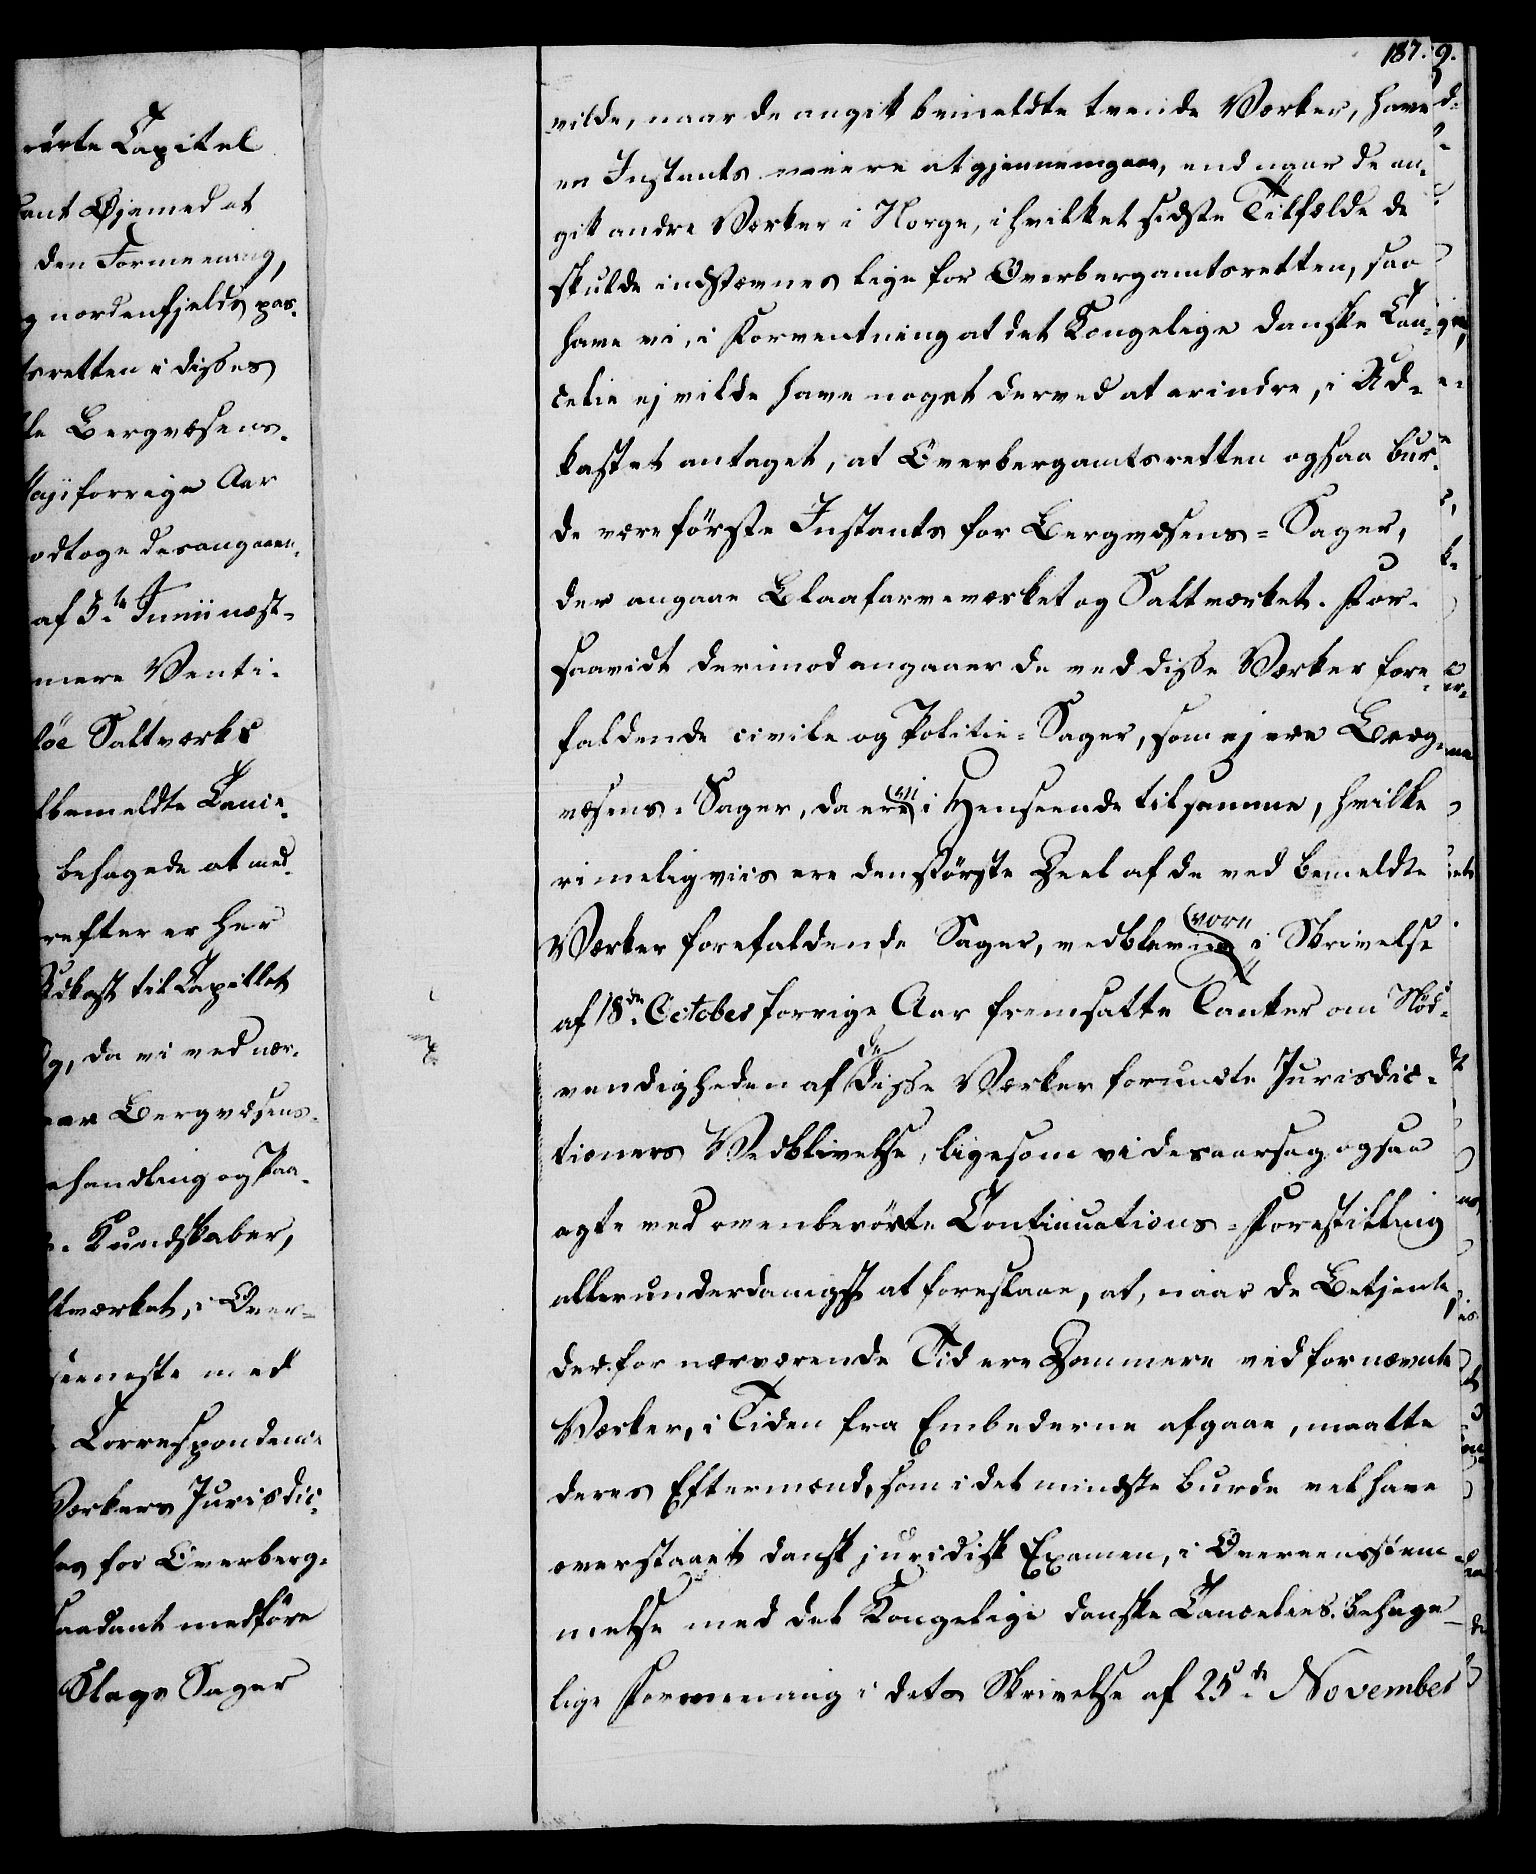 187. 9.
rörte Capitel
ant Øjemed at
den Formeening,
g nordenfjelds pas-
tsretten i disses
te Bergvæsens-
forrige Aar
odtoge desangaaen-
af 5.te Junii næst-
mere Venti-
löe Saltværks
tbemeldte Cance-
behagede at med-
refter er her
Udkast til Capitlet
og, da vi ved nær-
Bergvæsens-
ehandling og Paa-
Kundskaber,
ltværket, i Over-
med
Correspondence
Værkers Jurisdic-
for Overberg-
saadant medföre
Slags Sager
vilde, naar de angik bemeldte tvende Værker, have
en Instants meere at gjennemgaae, end naar de an-
gik andre Værker i Norge, i hvilket sidste Tilfælde de
skulde indstævnes lige for Overbergamtsretten, saa
have vi, i Forventning at det Kongelige danske Can-
celie ej vilde have noget derved at erindre, i Ud-
kastet antaget, at Overbergamtsretten ogsaa bur-
de være förste Instants for Bergvæsens-Sager,
der angaae Blaafarveværket og Saltværket. For-
saavidt derimod angaaer de ved disse Værker fore-
faldende civile og Politie-Sager, som ej ere Berg-
væsens-Sager, da ere vi i Henseende til samme, hvilke
rimeligviis ere den störste Deel af de ved bemeldte
Værker forefaldende Sager, vedbleven vore i Skrivelse
af 18de October forrige Aar fremsatte Tanker om Nöd-
vendigheden af de disse Værker forundte Jurisdic-
tioners Vedblivelse, ligesom vi desaarsag ogsaa
agte ved ovenberörte Continuations-Forestilling
allerunderdanigst at foreslaae, at, naar de Betjente,
der for nærværende Tid ere Dommere ved fornævnte
Værker, i Tiden fra Embederne afgaae, maatte
deres Eftermænd, som i det mindste burde vel have
overstaaet dansk juridisk Examen, i Overeensstem-
melse med det Kongelige danske Cancelies behage-
lige Formening i dets Skrivelse af 25de November